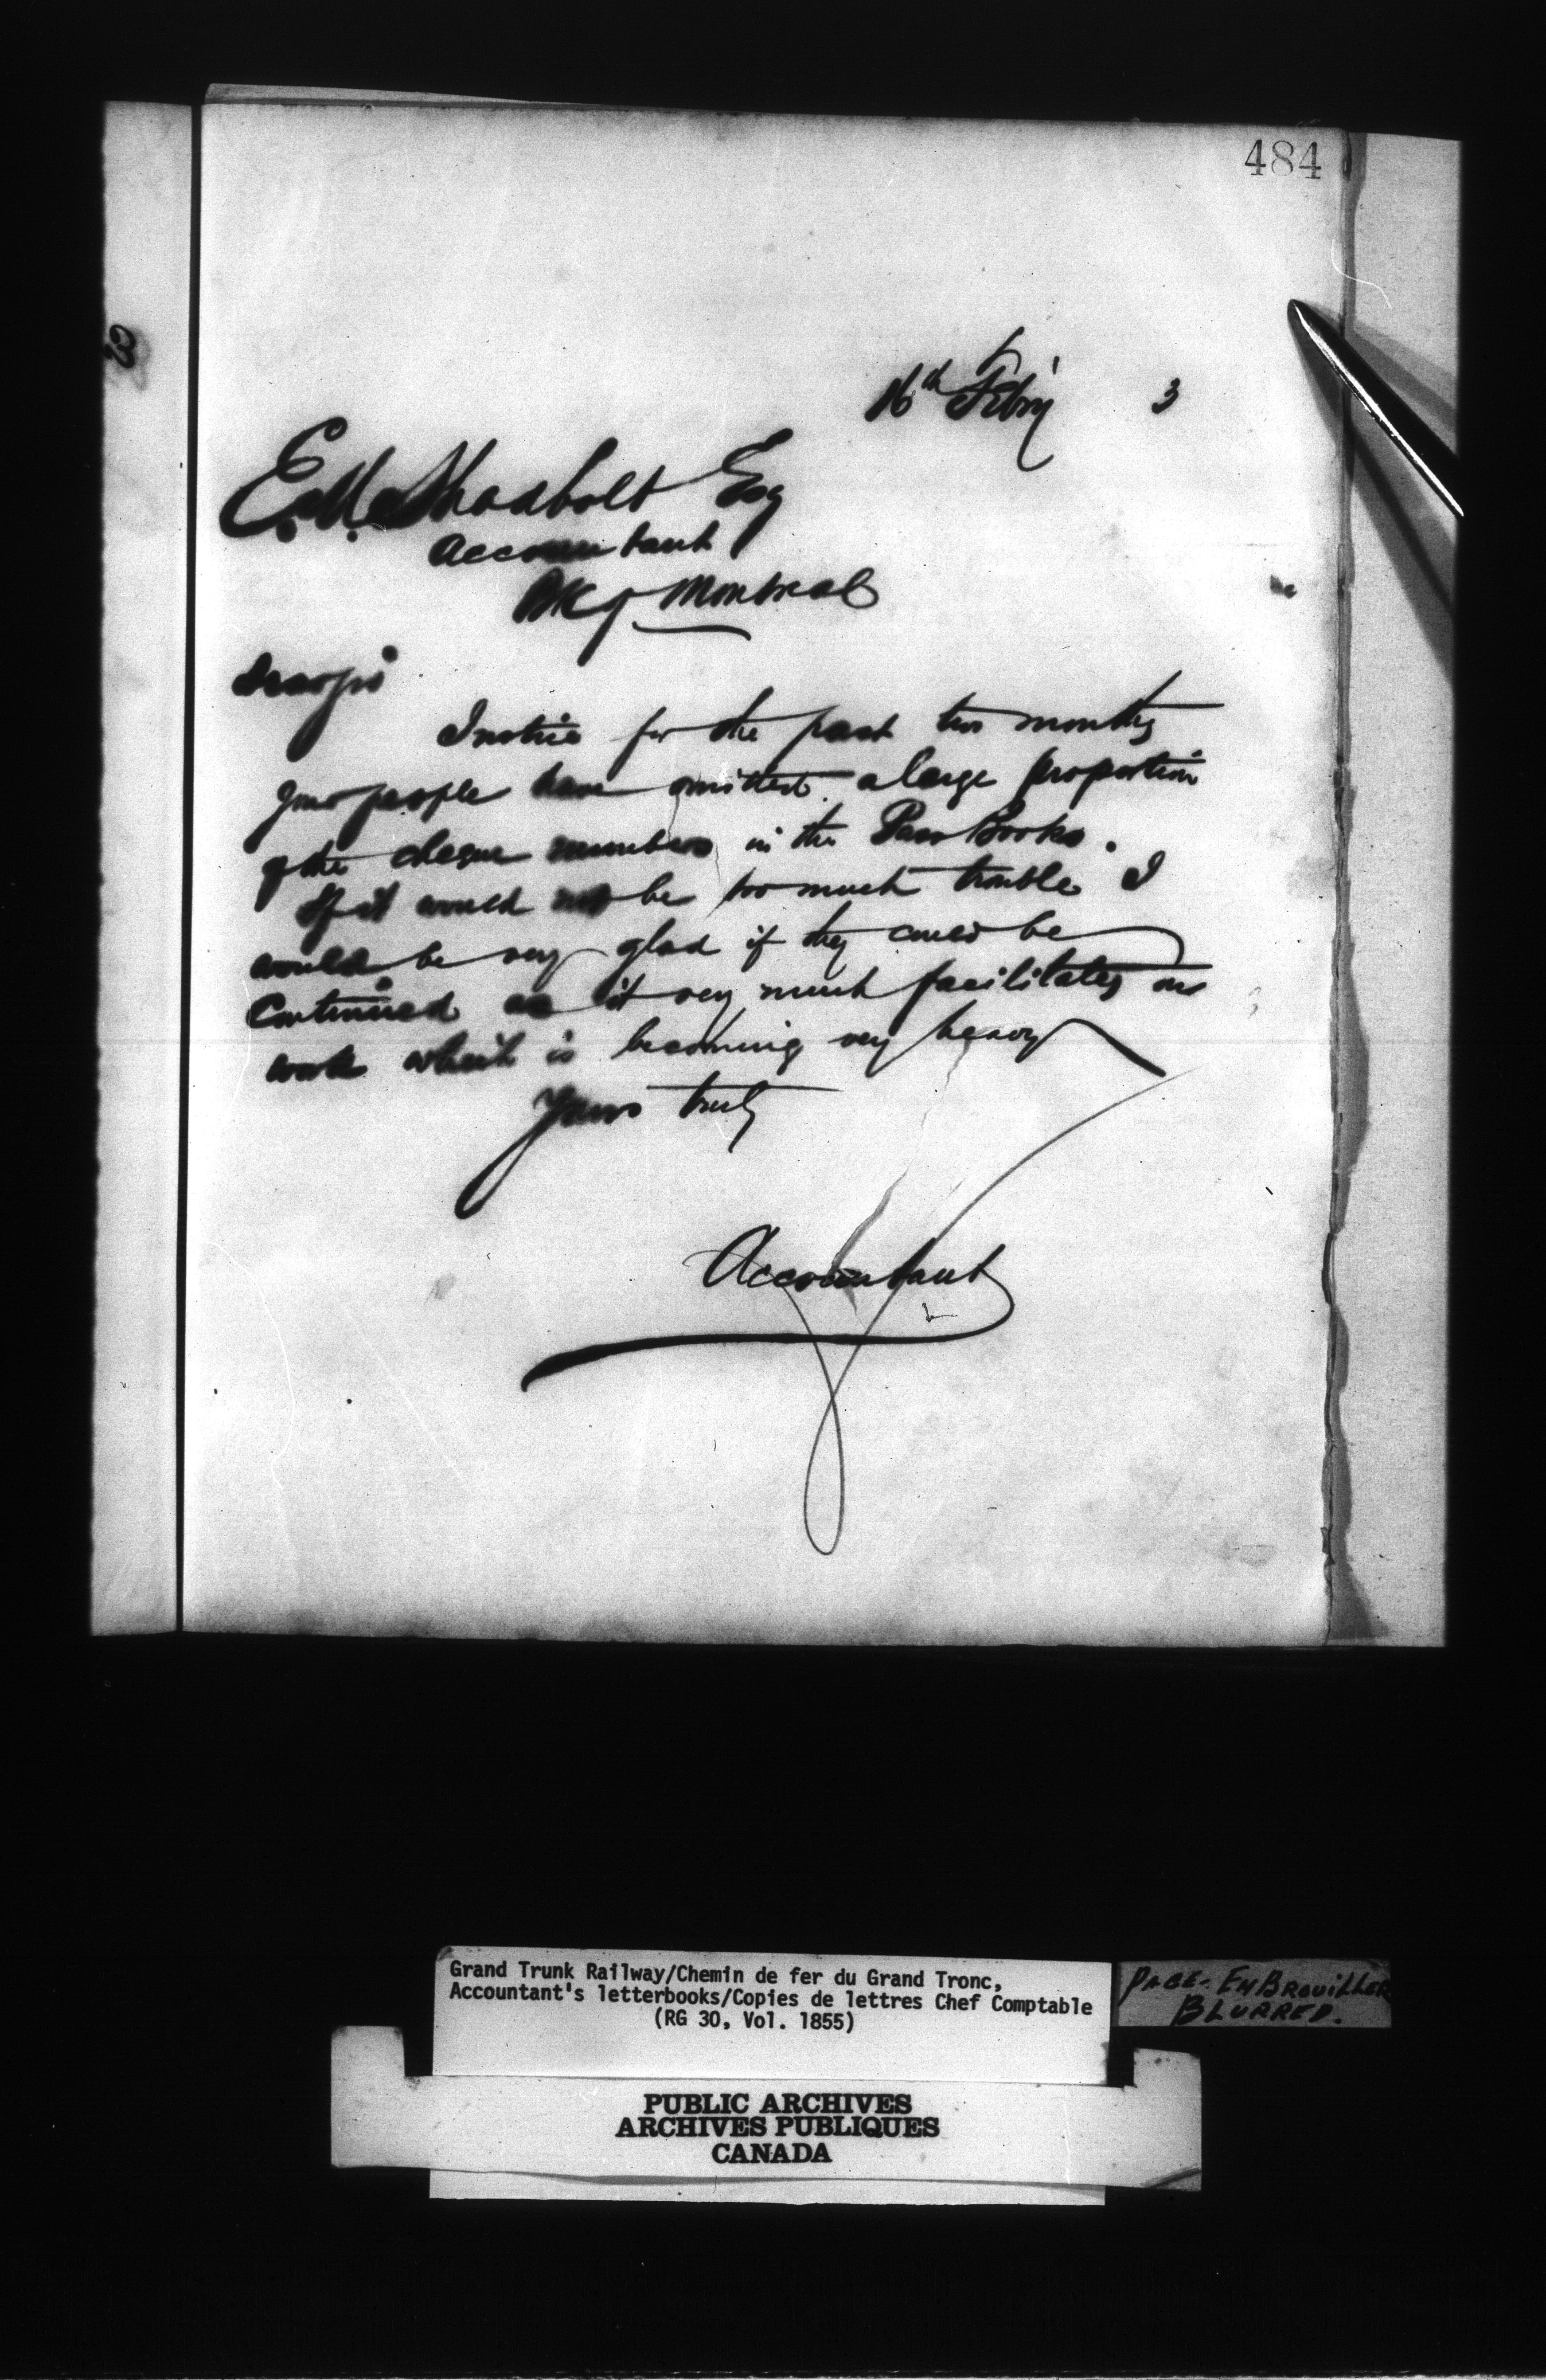 484
16th Feby 3
E. M. Shadbolt Esq
Accountant
Bk of Montreal
Dear Sir
I notice for the past two months
your people have omitted a large proportion
of the cheque numbers in the Pass Books.
If it would not be too much trouble I
would be very glad if they could be
Continued as it very much facilitates our
work which is becoming very heavy
Yours truly
Accountant
Grand Trunk Railway/Chemin de fer du Grand Tronc,
Accountant's letterbooks/Copies de lettres Chef Comptable
(RG 30, Vol. 1855)
PAGE- EMBROUILLER
BLURRED.
PUBLIC ARCHIVES
ARCHIVES PUBLIQUES
CANADA